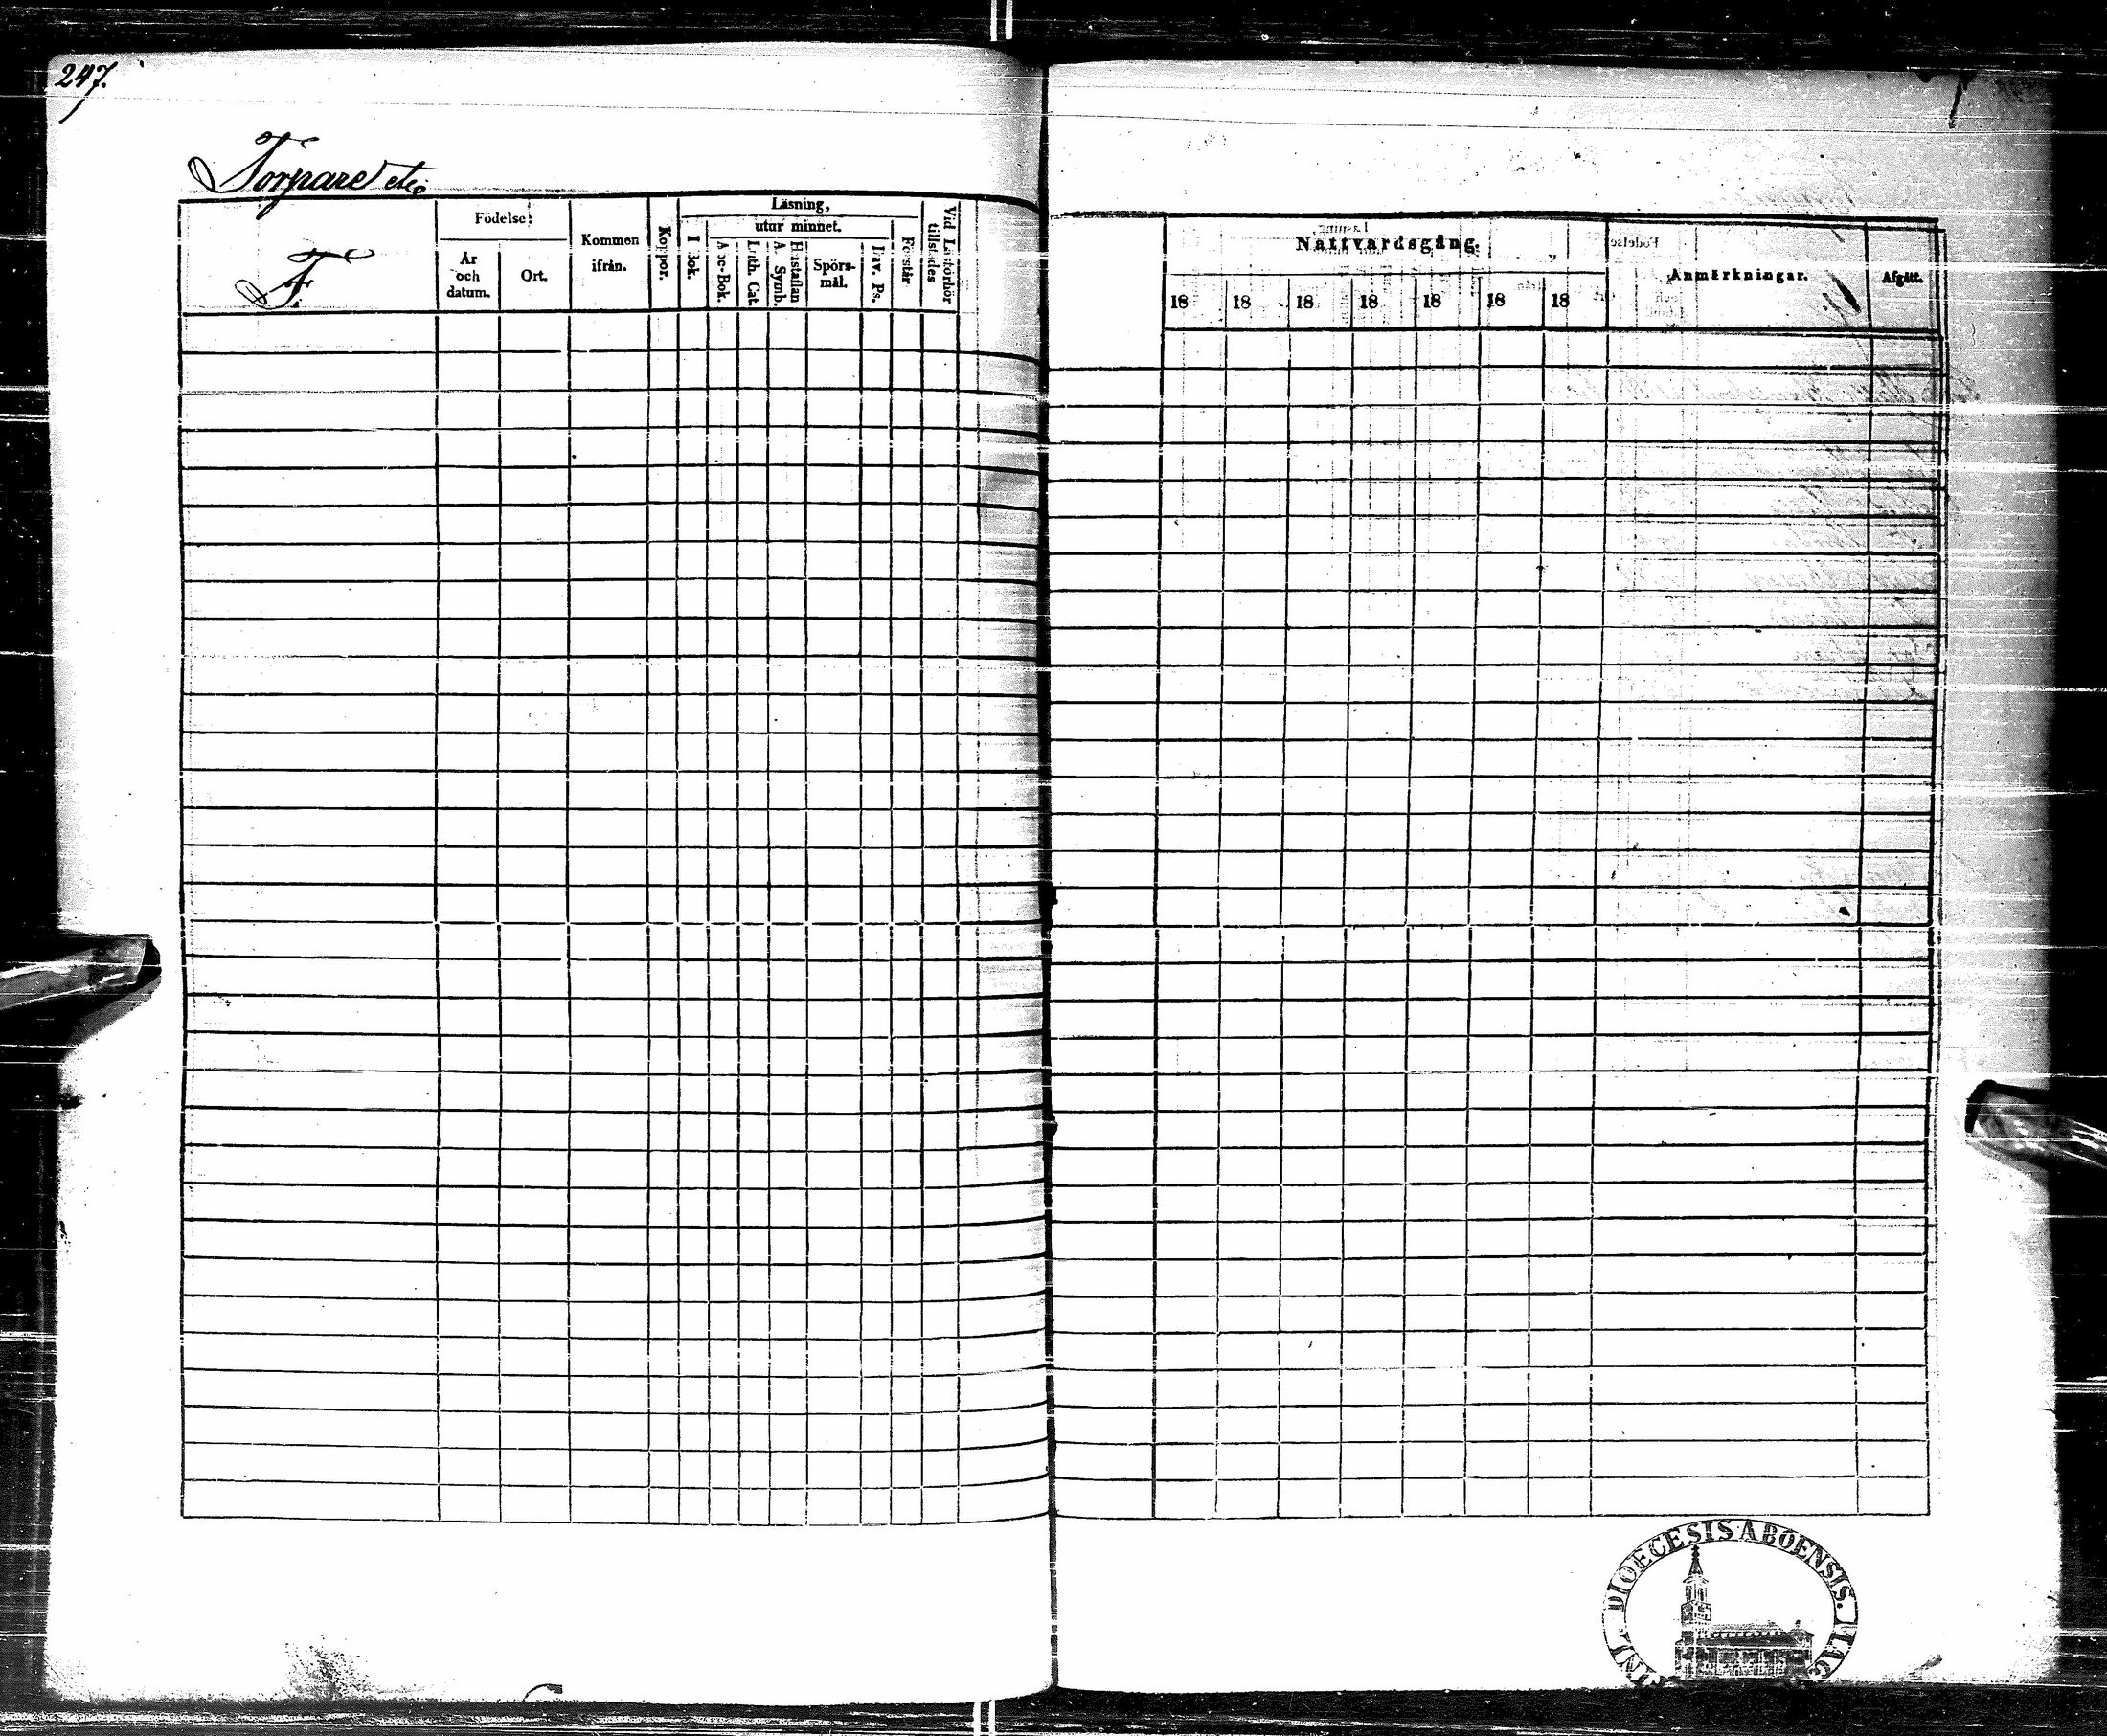 247.
Torpare etc
F.
Födelse:
År och datum.
Ort.
Kommen ifrån.
Koppor.
Läsning,
I Bok.
utur minnet.
Abc-Bok.
Luth. Cat.
Hustaflan A. Symb.
Spörsmål.
Dav. Ps.
Förstår
Vid Läsförhör tillstädes
Nattvardsgång.
18 18 18 18 18 18 18
Anmärkningar.
Afgått.
DIOECESIS ABOENSIS. MAG